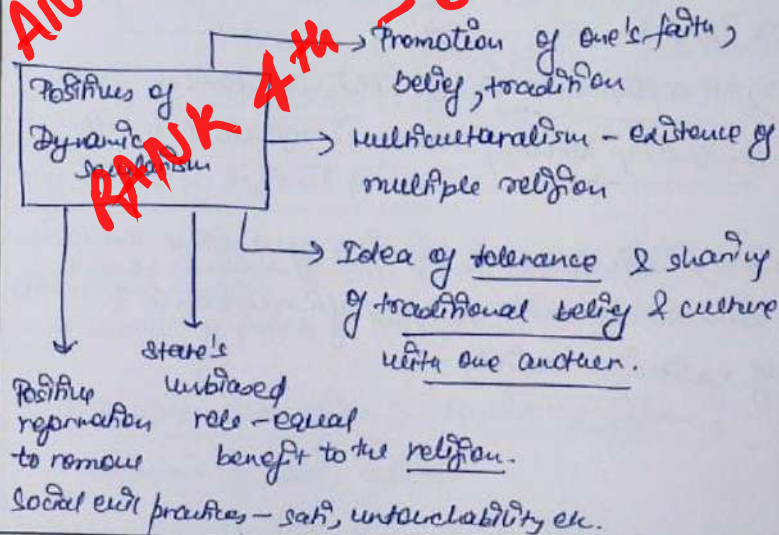 RANK 4th -
Positives of
Dynamic
secularism
Promotion of one's faith,
belief, tradition
Multiculturalism - existence of
multiple religion
Idea of tolerance & sharing
of traditional belief & culture
with one another.
State's
unbiased
role - equal
benefit to the religion.
Positive
reformation
to remove
social evil practices - sati, untouchability etc.